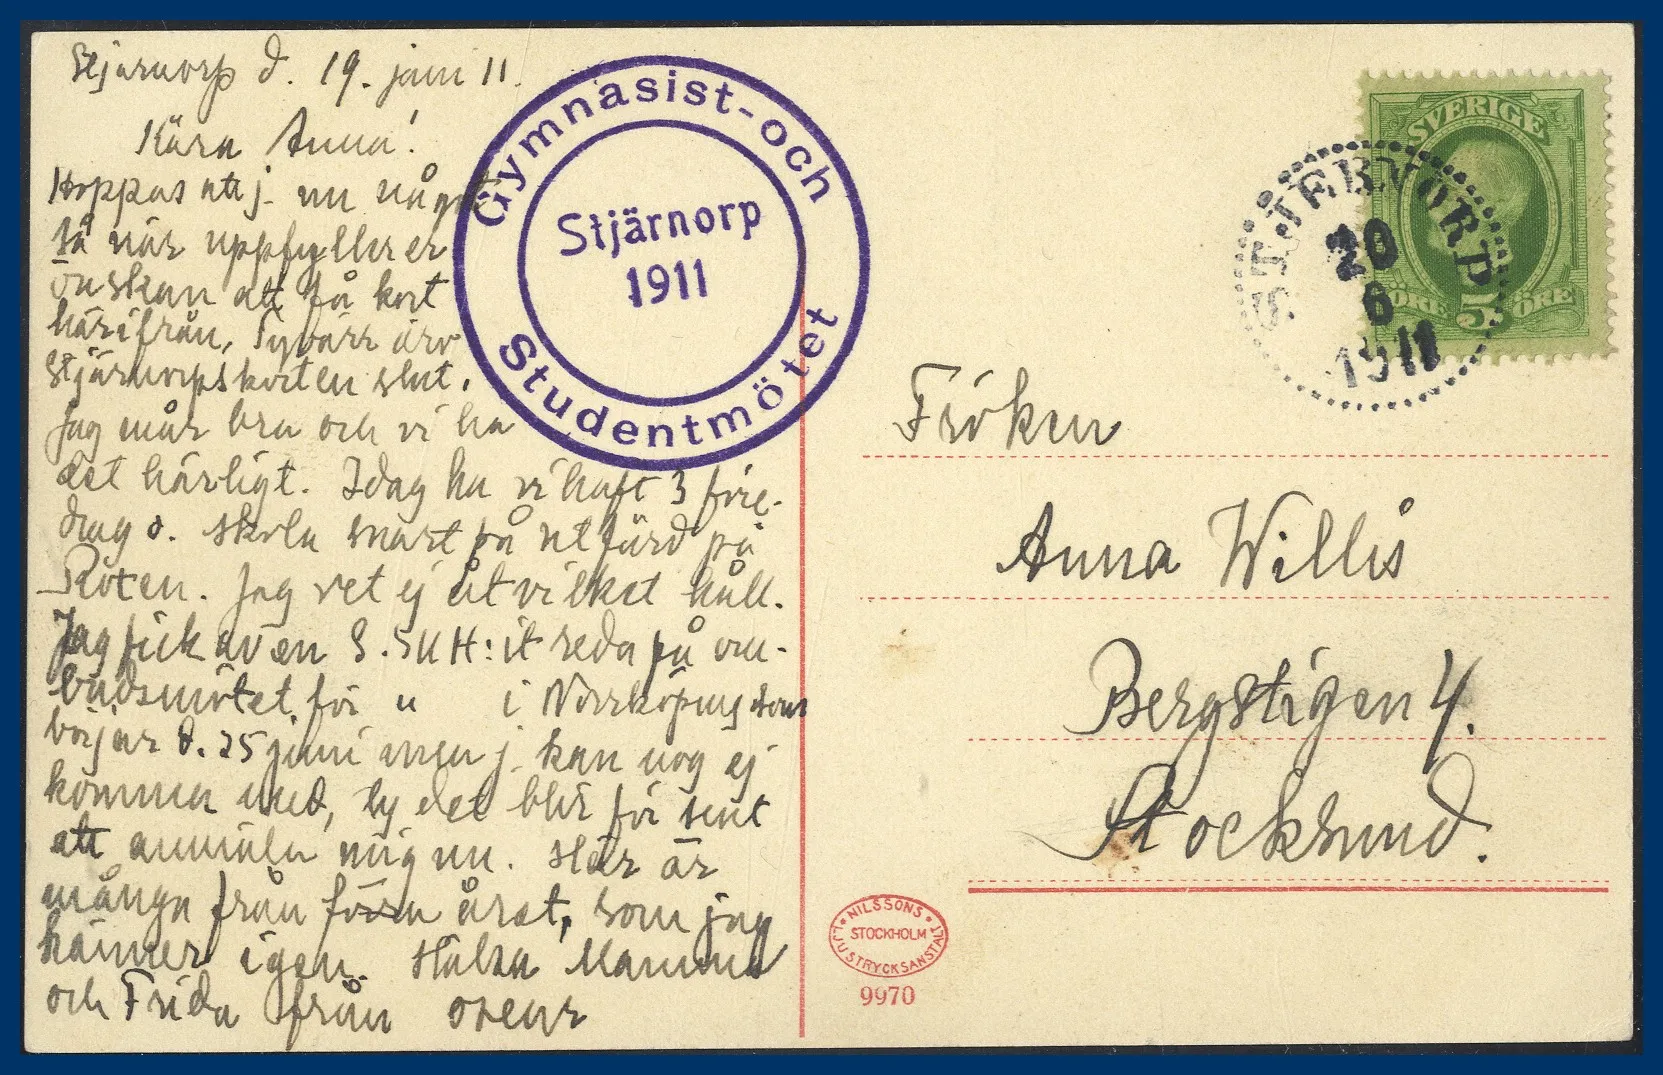 Stjärnorp d. 19. juni 11.
Kära Anna!
Hoppas att j. nu något
så när uppfyller er
önskan att få kort
härifrån, Tyvärr äro
Stjärnorpskorten slut.
Jag mår bra och vi ha
det härligt. Idag ha vi haft 3 före-
drag o. skola snart på utfärd på
Roxen. Jag vet ej åt vilket håll.
Jag fick av en S.S.U.H:it reda på om-
budsmötet för " i Norrköping som
börjar d. 25 juni men j. kan nog ej
komma med, ty det blir för sent
att anmäla mig nu. Här är
många från förra året, som jag
känner igen. Hälsa Mamma
och Frida från
Gymnasist- och
Studentmötet
Stjärnorp
1911
SVERIGE
5 ÖRE ÖRE
STJERNORP
20
6
1911
Fröken
Anna Willis
Bergstigen 4.
Stocksund.
NILSSONS
STOCKHOLM
LJUSTRYCKSANSTALT
9970